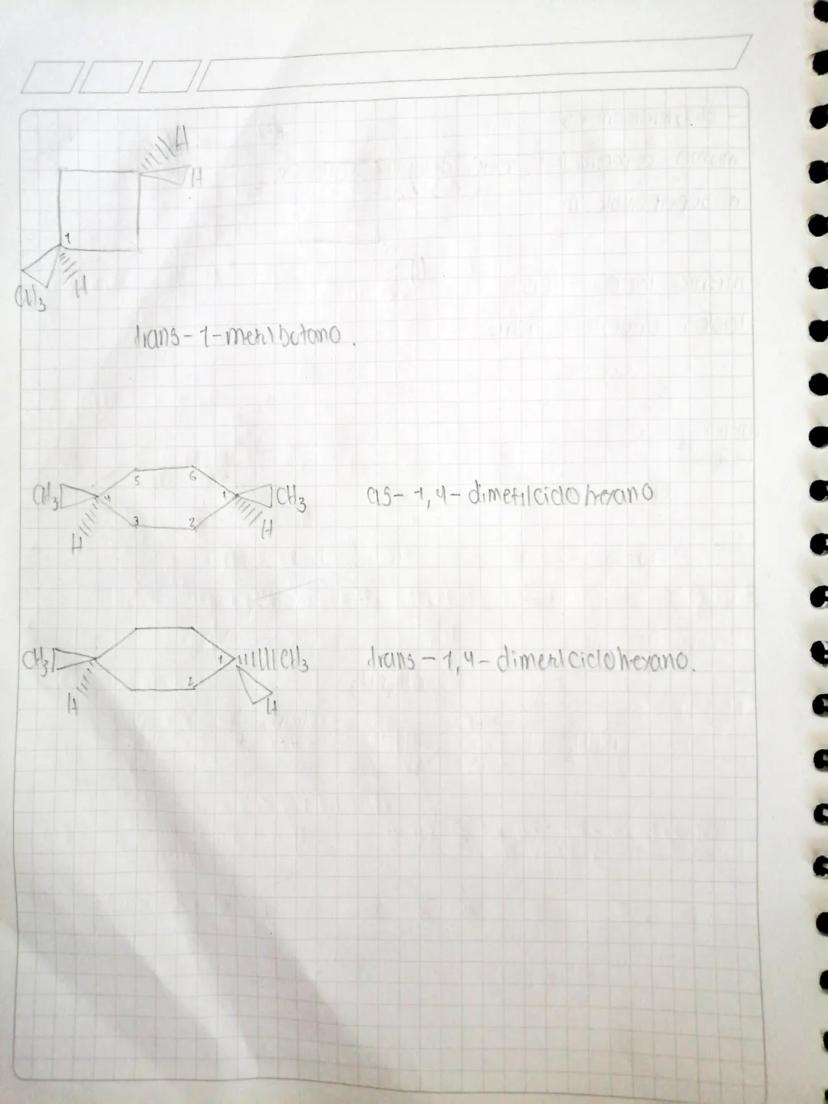 H
H
1
CH3
H
trans-1-metilbutano.
5
6
CH3
4
1
CH3
cis-1,4-dimetilciclohexano
H
3
2
H
CH3
1
CH3
trans-1,4-dimetilciclohexano.
2
H
H